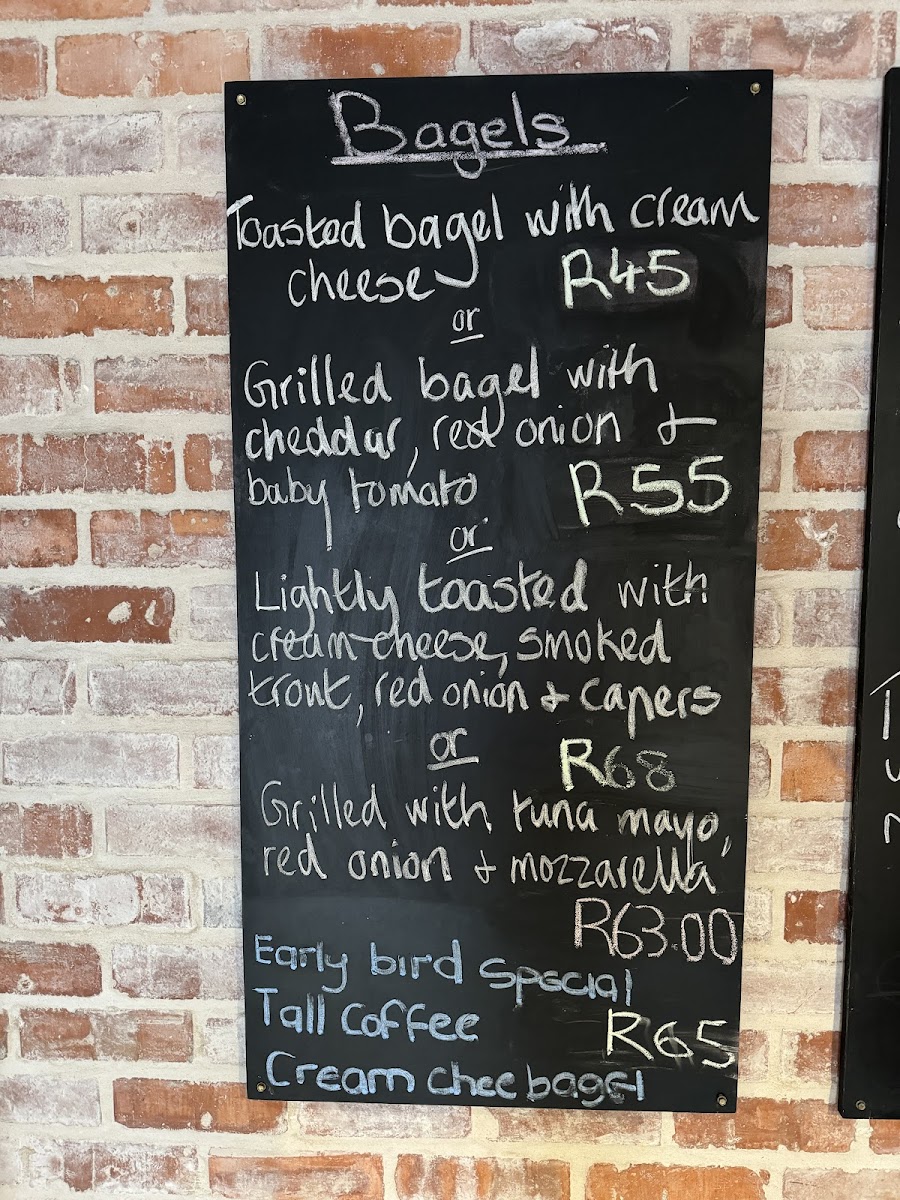 Bagels
Toasted bagel with cream
cheese R45
or
Grilled bagel with
cheddar, red onion +
baby tomato R55
or
Lightly toasted with
cream-cheese, smoked
trout, red onion + capers
or R68
Grilled with tuna mayo,
red onion + mozzarella
R63.00
Early bird special
Tall Coffee R65
Cream chee bagel